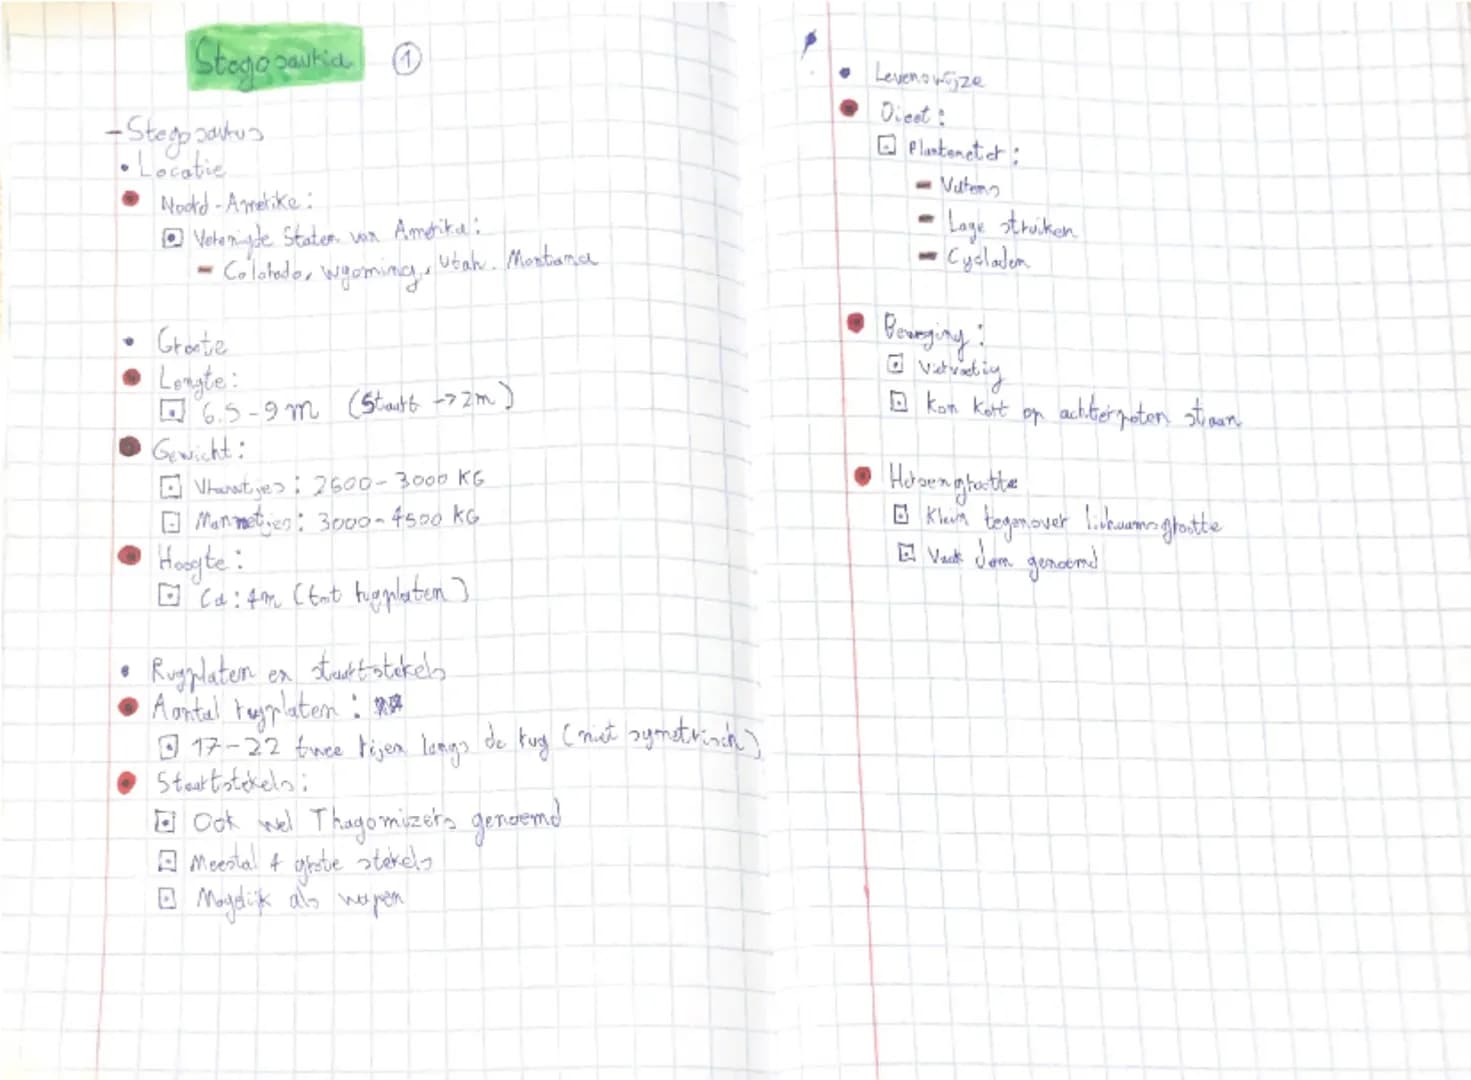 Stegosauria ①
- Stegosaurus
• Locatie
Noord-Amerika:
Verenigde Staten van Amerika:
- Colorado, Wyoming, Utah, Montana
• Grootte
Lengte:
6.5-9 m (Staart → 2m)
Gewicht:
Vrouwtjes: 2500-3000 KG
Mannetjes: 3000-4500 KG
Hoogte:
Ca: 4m (tot rugplaten)
• Rugplaten en staartstekels
Aantal rugplaten:
17-22 twee rijen langs de rug (niet symetrisch)
Staartstekels:
Ook wel Thagomizers genoemd
Meestal 4 grote stekels
Mogelijk als wapen
• Levenswijze
Dieet:
Planteneter:
- Varens
- Lage struiken
- Cycladen
Beweging:
Viervoetig
Kon kort op achterpoten staan
Hersengrootte
Klein tegenover lichaamsgrootte
Vaak dom genoemd